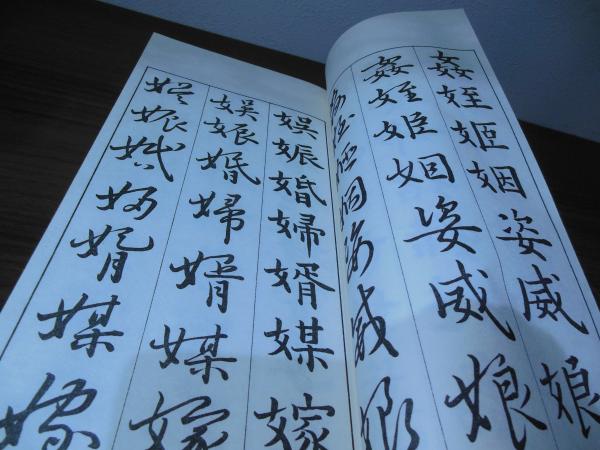 姦姪姫姻姿威娘
姦姪姫姻姿威娘
姪姫姻姿威娘
娯娠婚婦婿媒嫁
娯娠婚婦婿媒嫁
娯娠婚婦婿媒嫁